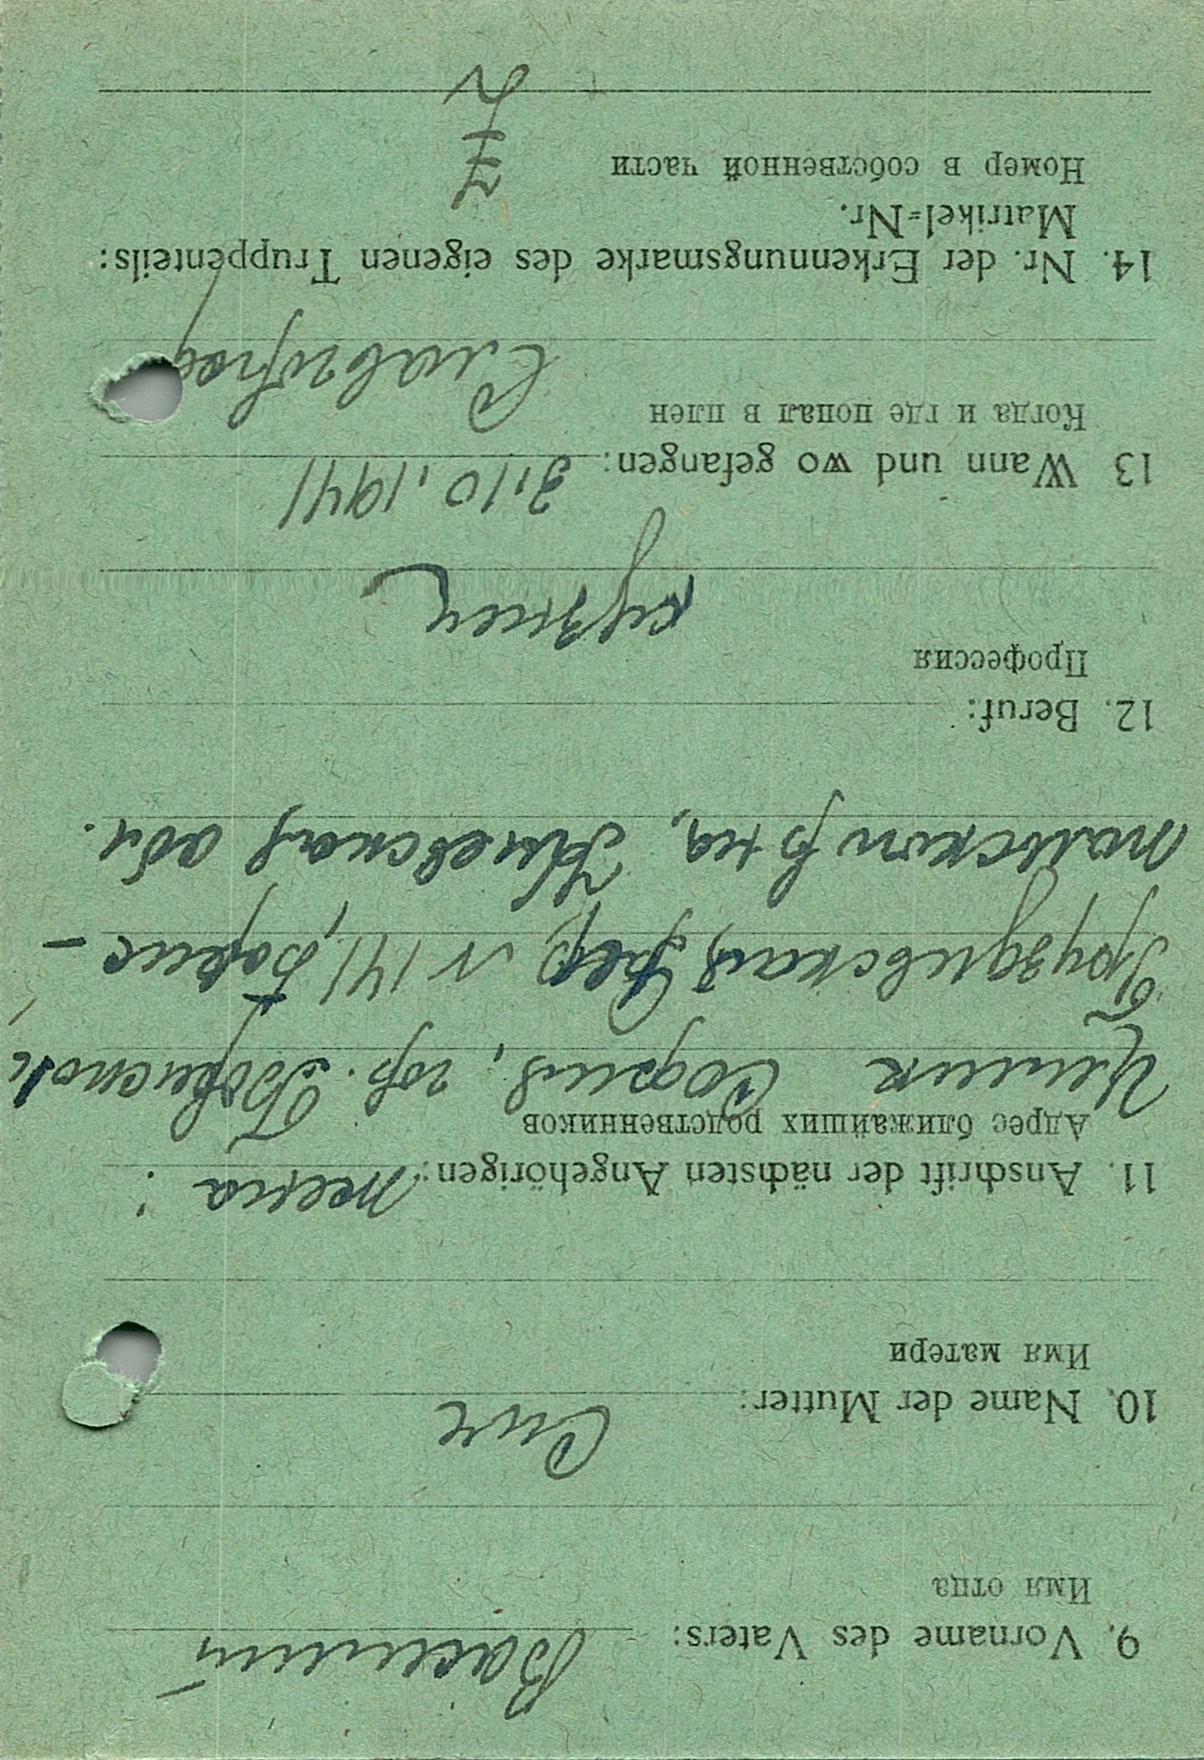 9. Vorname des Vaters: Василий
Имя отца
10. Name der Mutter:
Имя матери
11. Anschrift der nächsten Angehörigen: жена:
Адрес ближайших родственников
София, гор. Борисполь
N 141, Борис-
польский р-на, Киевская обл.
12. Beruf:
Профессия
кузнец
13 Wann und wo gefangen: 3.10.1941
Когда и где попал в плен
Славгород
14. Nr. der Erkennungsmarke des eigenen Truppenteils:
Matrikel-Nr.
Номер в собственной части